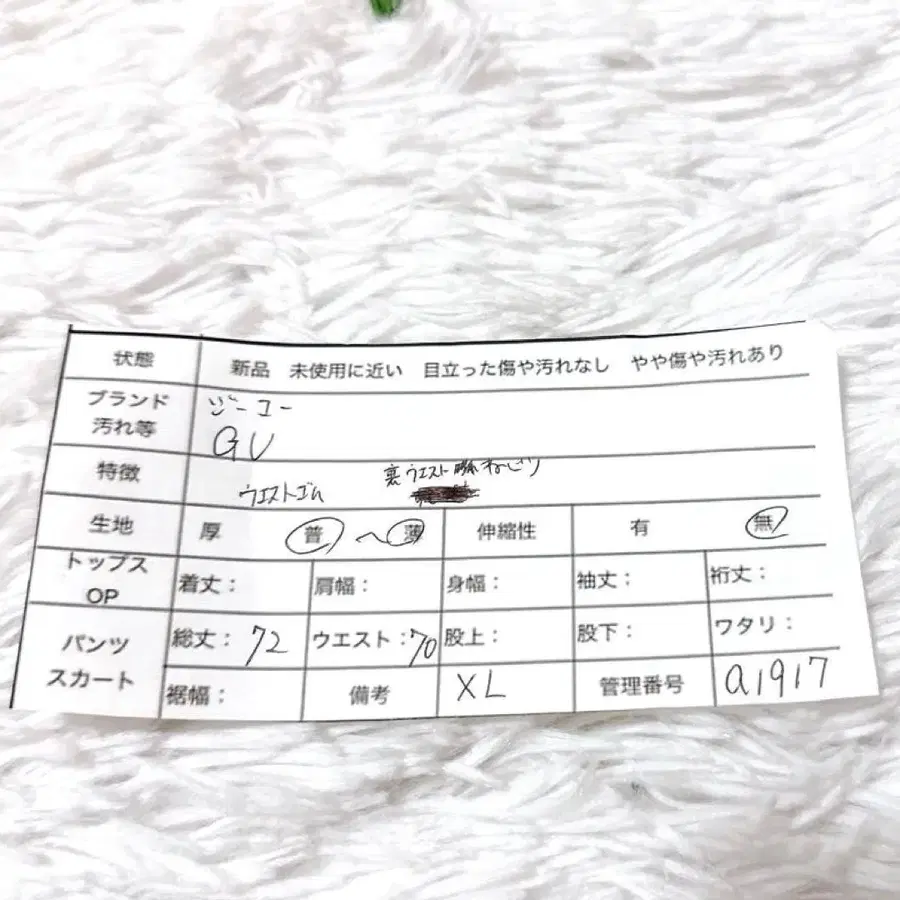 状態 新品 未使用に近い 目立った傷や汚れなし やや傷や汚れあり
ブランド ジーユー
汚れ等 GU
特徴 ウエストゴム 裏ウエスト
生地 厚 普 〜 薄 伸縮性 有 無
トップス OP 着丈: 肩幅: 身幅: 袖丈: 裄丈:
パンツ 総丈: 72 ウエスト: 70 股上: 股下: ワタリ:
スカート 裾幅: 備考 XL 管理番号 a1917